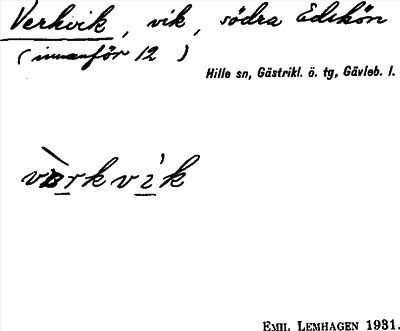 Verkvik, vik, södra Edskön
(innanför 12)
Hille sn, Gästrikl. ö. tg, Gävleb. l.
värkvik
EMIL LEMHAGEN 1931.